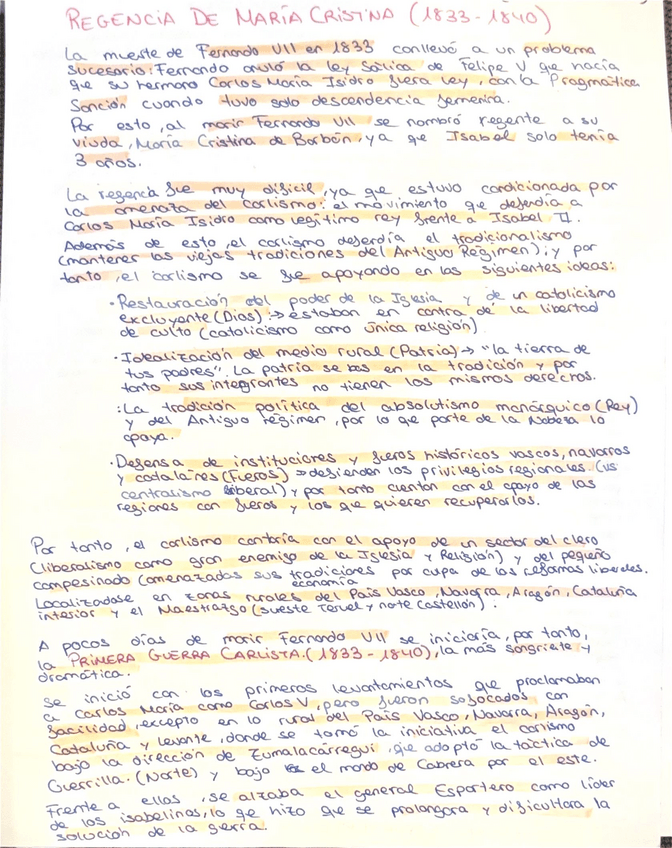 REGENCIA DE MARÍA CRISTINA (1833-1840)
La muerte de Fernando VII en 1833 conllevó a un problema
sucesorio: Fernando anuló la ley Sálica de Felipe V que hacía
que su hermano Carlos María Isidro fuera Ley, con la Pragmática
Sanción cuando tuvo solo descendencia femenina.
Por esto, al morir Fernando VII se nombró regente a su
viuda, María Cristina de Borbón, ya que Isabel solo tenía
3 años.
La regencia fue muy difícil, ya que estuvo condicionada por
la amenaza del carlismo: el movimiento que defendía a
Carlos María Isidro como legítimo rey frente a Isabel II.
Además de esto, el carlismo defendía el tradicionalismo
(mantener las viejas tradiciones del Antiguo Régimen); y por
tanto, el carlismo se fue apoyando en las siguientes ideas:
·Restauración del poder de la Iglesia y de un catolicismo
excluyente (Dios) → estaban en contra de la libertad
de culto (catolicismo como única religión)
·Idealización del medio rural (Patria) → "la tierra de
tus padres". La patria se bas en la tradición y por
tanto sus integrantes no tienen los mismos derechos.
·La tradición política del absolutismo monárquico (Rey)
y del Antiguo régimen, por lo que parte de la Nobleza lo
apoya.
·Defensa de instituciones y fueros históricos vascos, navarros
y catalanes (Fueros) ⇒ defienden los privilegios regionales. (vs
centralismo liberal) y por tanto cuentan con el apoyo de las
regiones con fueros y los que quieren recuperarlos.
Por tanto, el carlismo contaría con el apoyo de un sector del clero
(liberalismo como gran enemigo de la Iglesia y Religión) y del pequeño
campesinado (amenazados sus tradiciones por cupa de las reformas liberales.
economía
Localizadose en zonas rurales del País Vasco, Navarra, Aragón, Cataluña
interior y el Maestrazgo (sueste Teruel y norte Castellón).
A pocos días de morir Fernando VII se iniciaría, por tanto,
la PRIMERA GUERRA CARLISTA. (1833-1840), la más sangrieta y
dramática.
Se inició con los primeros levantamientos que proclamaban
a Carlos María como Carlos V, pero fueron sofocados con
facilidad, excepto en lo rural del País Vasco, Navarra, Aragón,
Cataluña y levante, donde se tomó la iniciativa el carlismo
bajo la dirección de Zumalacárregui, que adoptó la táctica de
Guerrilla. (Norte) y bajo el mando de Cabrera por el este.
Frente a ellos, se alzaba el general Espartero como líder
de los isabelinos, lo que hizo que se prolongara y dificultara la
solución de la gerra.